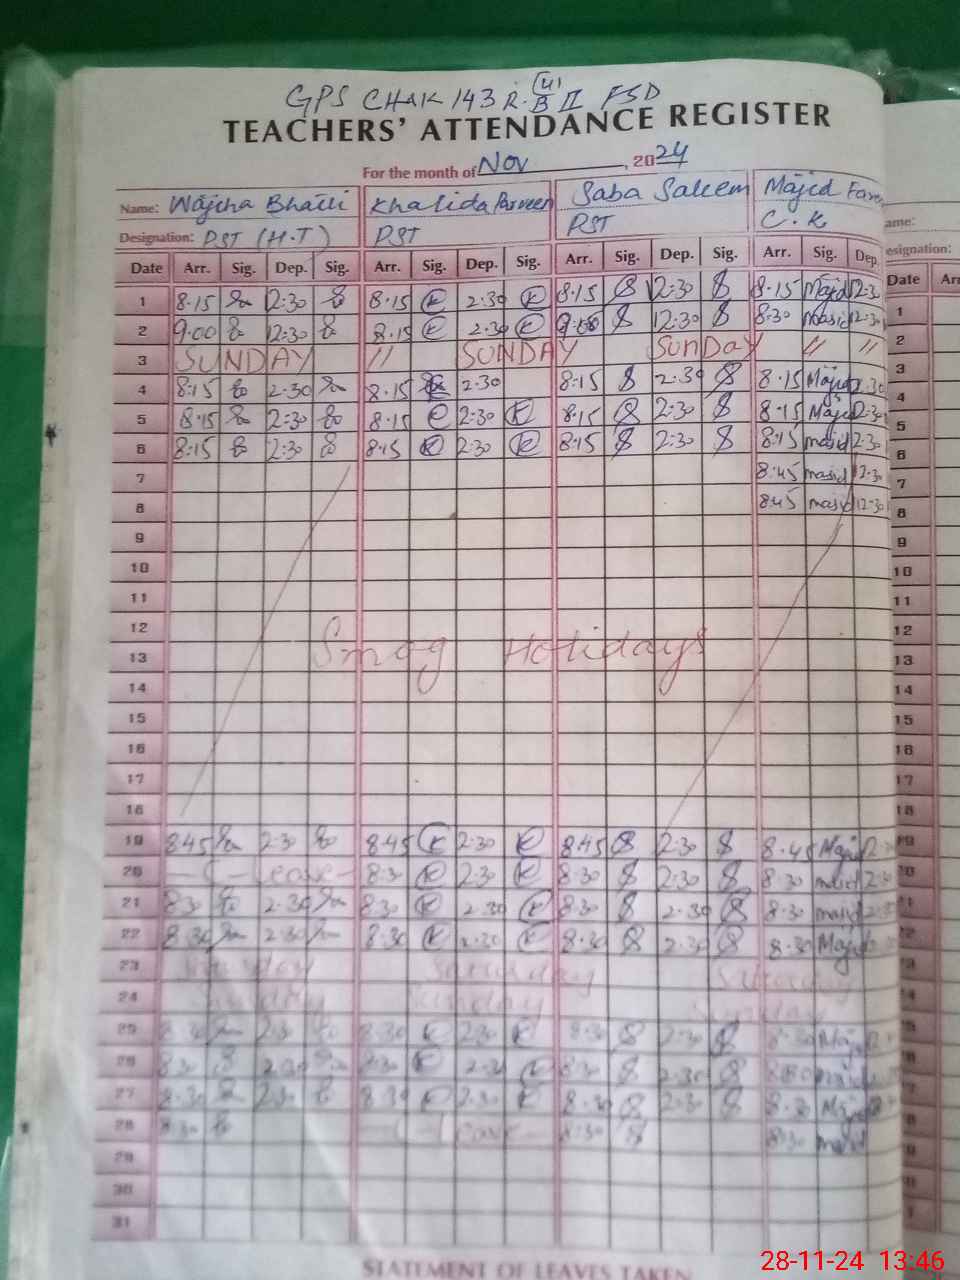 GPS CHAK 143 R.B II FSD
(4)
TEACHERS' ATTENDANCE REGISTER
For the month of Nov , 2024
Name: Wajiha Bhatti Khalida Parveen Saba Saleem Majid
Designation: PST (H.T) PST PST C.K
Date Arr. Sig. Dep. Sig. Arr. Sig. Dep. Sig. Arr. Sig. Dep. Sig. Arr. Sig. Dep. Date
1 8.15 2:30 8.15 K 2.30 K 8.15 S 2:30 S 8.15 Majid 2.30 1
2 9.00 12:30 8.15 K 2.30 K 9.00 S 12:30 S 8:30 Masid 12:30 2
3 SUNDAY 〃 SUNDAY SUNDAY 〃 〃 3
4 8:15 2:30 8.15 K 2:30 8:15 S 2:30 S 8.15 Majid 2.30 4
5 8.15 2:30 8.15 K 2:30 K 8.15 S 2:30 S 8.15 Majid 2:30 5
6 8:15 2:30 8:15 K 2:30 K 8:15 S 2:30 S 8:15 masid 2:30 6
7 8:45 masid 12:30 7
8 8:45 masid 12:30 8
9 9
10 10
11 11
12 12
Smog Holidays
13 13
14 14
15 15
16 16
17 17
18 18
19 8:45 2:30 8:45 K 2:30 K 8:45 S 2:30 S 8.45 Majid 19
20 C-Leave 8:30 K 2:30 K 8:30 S 2:30 S 8.30 masid 2:30 20
21 8:30 2:30 8:30 K 2.30 K 8:30 S 2.30 S 8.30 masid 21
22 8:30 2:30 8:30 K 2:30 K 8:30 S 2:30 S 8.30 Majid 22
23 Saturday Saturday Saturday
24 Sunday Sunday Sunday
25 8:30 2:30 8:30 K 2:30 K 8:30 S 2:30 S 8:30 Majid
26 8:30 2:30 8:30 K 2:30 K 8:30 S 2:30 S 8:30 masid
27 8:30 2:30 8:30 K 2:30 K 8:30 S 2:30 S 8.30 Majid
28 8:30 C-Leave 8:30 S 8:30 masid
29
30
31
STATEMENT OF LEAVES TAKEN
28-11-24 13:46